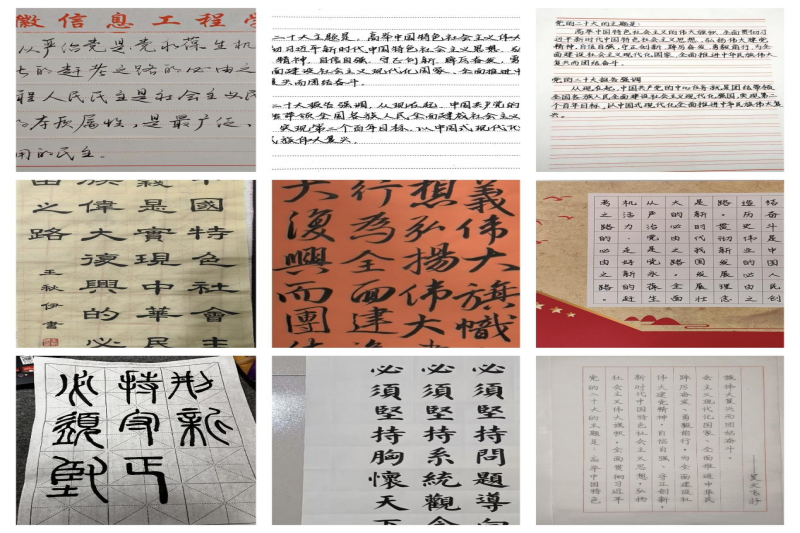 徽信息工程学
从严治党是党永葆生机
的赶考之路的必由之
程人民民主是社会主义民
的本质属性，是最广泛、
用的民主.
二十大主题是，高举中国特色社会主义伟大
切习近平新时代中国特色社会主义思想，弘
精神，自信自强、守正创新，踔厉奋发、勇
面建设社会主义现代化国家、全面推进中
复兴而团结奋斗.
二十大报告强调，从现在起，中国共产党的
结带领全国各族人民全面建成社会主义
实现第二个百年目标，以中国式现代化
民族伟大复兴.
党的二十大的主题是:
高举中国特色社会主义伟大旗帜,全面贯彻习
近平新时代中国特色社会主义思想,弘扬伟大建党
精神,自信自强、守正创新,踔厉奋发、勇毅前行,为全
面建设社会主义现代化国家、全面推进中华民族伟大
复兴而团结奋斗.
党的二十大报告强调
从现在起,中国共产党的中心任务就是团结带领
全国各族人民全面建成社会主义现代化强国、实现第二
个百年目标,以中国式现代化全面推进中华民族伟大复
兴.
中國特色社會主
義是實現中華民
族偉大復興的必
由之路
王秋伊書
義伟大旗幟
想弘揚伟大
行為全面建
大復興而團结
结奋斗是中国人民创
造历史伟业的必由之
路。贯彻新发展理念
是新时代我国发展壮
大的必由之路。全面
从严治党是党永葆生
机活力、走好新的赶
考之路的必由之路。
創新
持守正
必須堅
必須堅持問題導向
必須堅持系統觀念
必須堅持胸懷天下
党的二十大的主题是:高举中国特色
社会主义伟大旗帜,全面贯彻习近平
新时代中国特色社会主义思想,弘扬
伟大建党精神,自信自强、守正创新,
踔厉奋发、勇毅前行,为全面建设社
会主义现代化国家、全面推进中华民
族伟大复兴而团结奋斗。